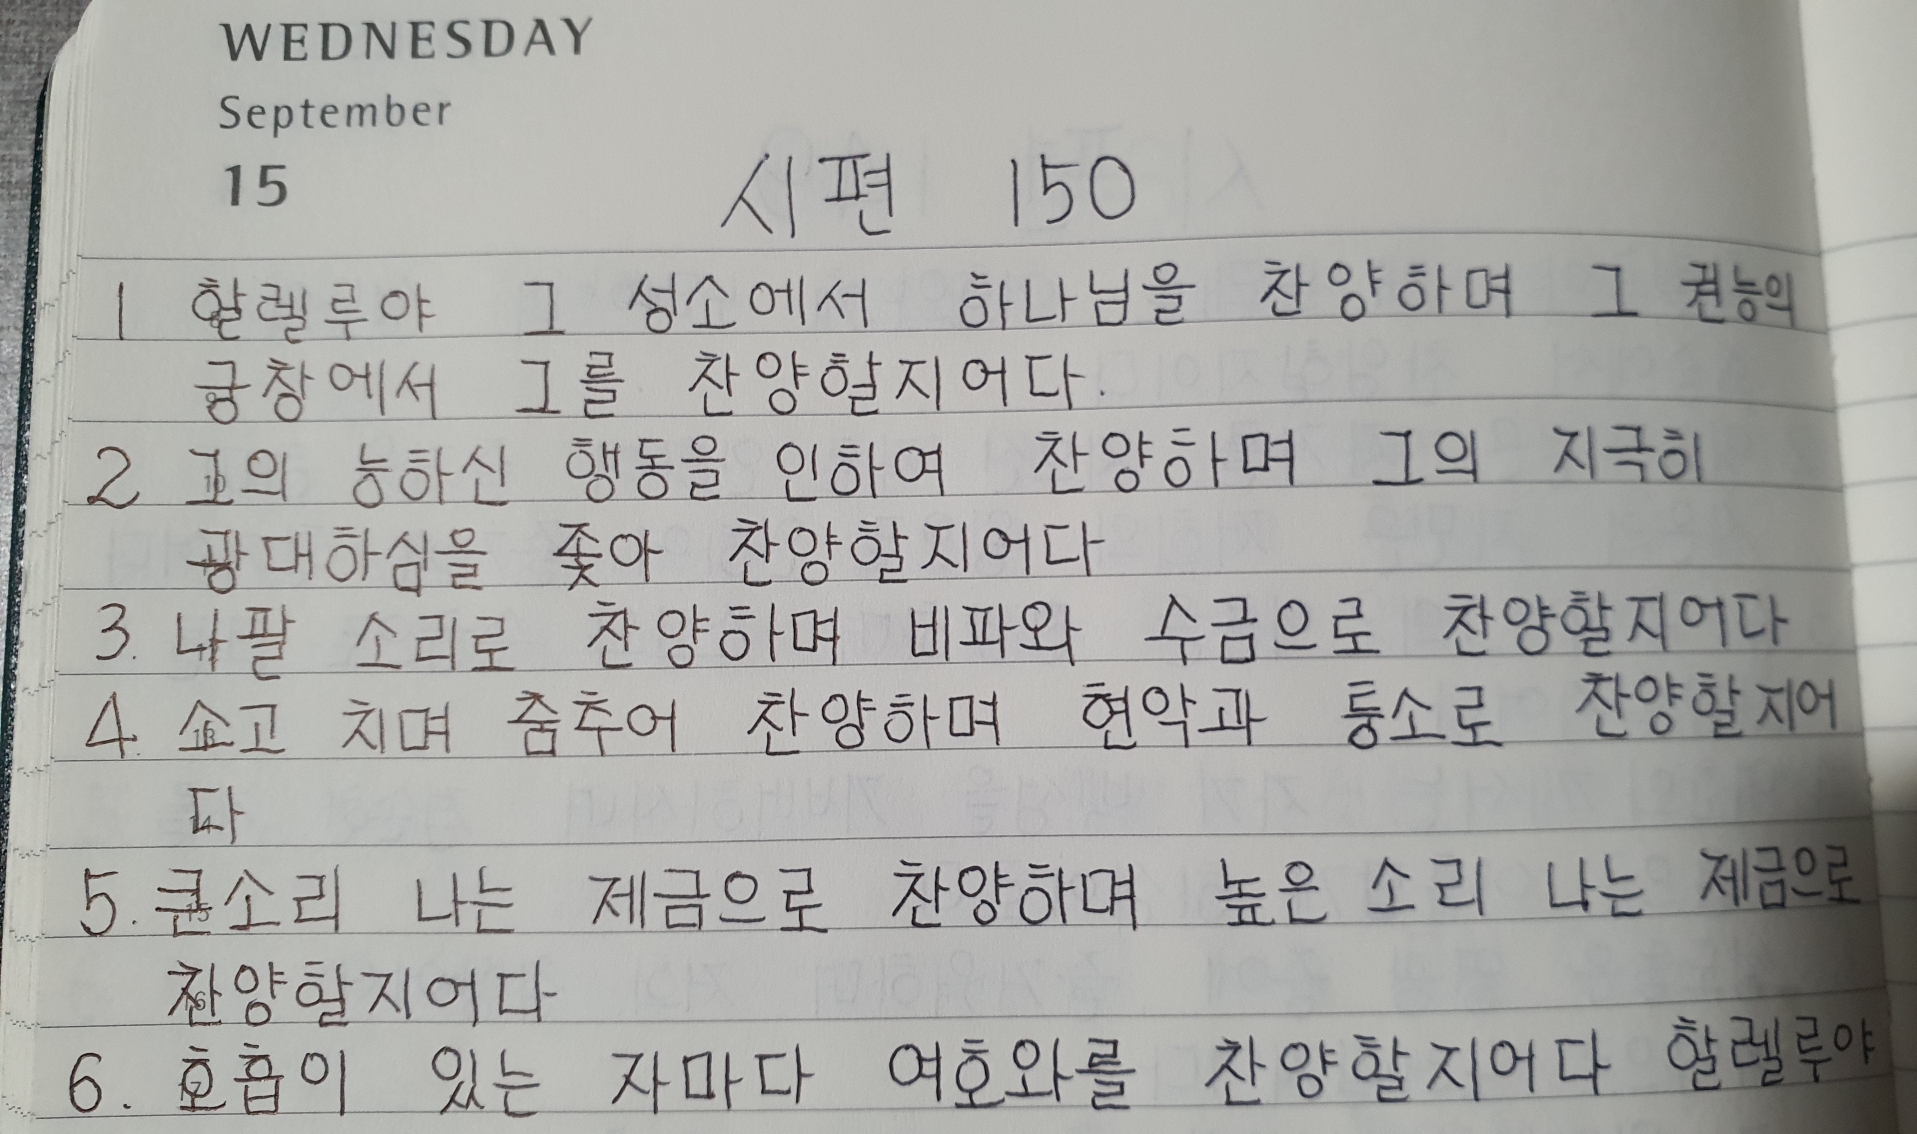 WEDNESDAY
September
15
시편 150
1 할렐루야 그 성소에서 하나님을 찬양하며 그 권능의
궁창에서 그를 찬양할지어다.
2 그의 능하신 행동을 인하여 찬양하며 그의 지극히
광대하심을 좇아 찬양할지어다
3. 나팔 소리로 찬양하며 비파와 수금으로 찬양할지어다
4. 소고 치며 춤추어 찬양하며 현악과 퉁소로 찬양할지어
다
5. 큰소리 나는 제금으로 찬양하며 높은 소리 나는 제금으로
찬양할지어다
6. 호흡이 있는 자마다 여호와를 찬양할지어다 할렐루야